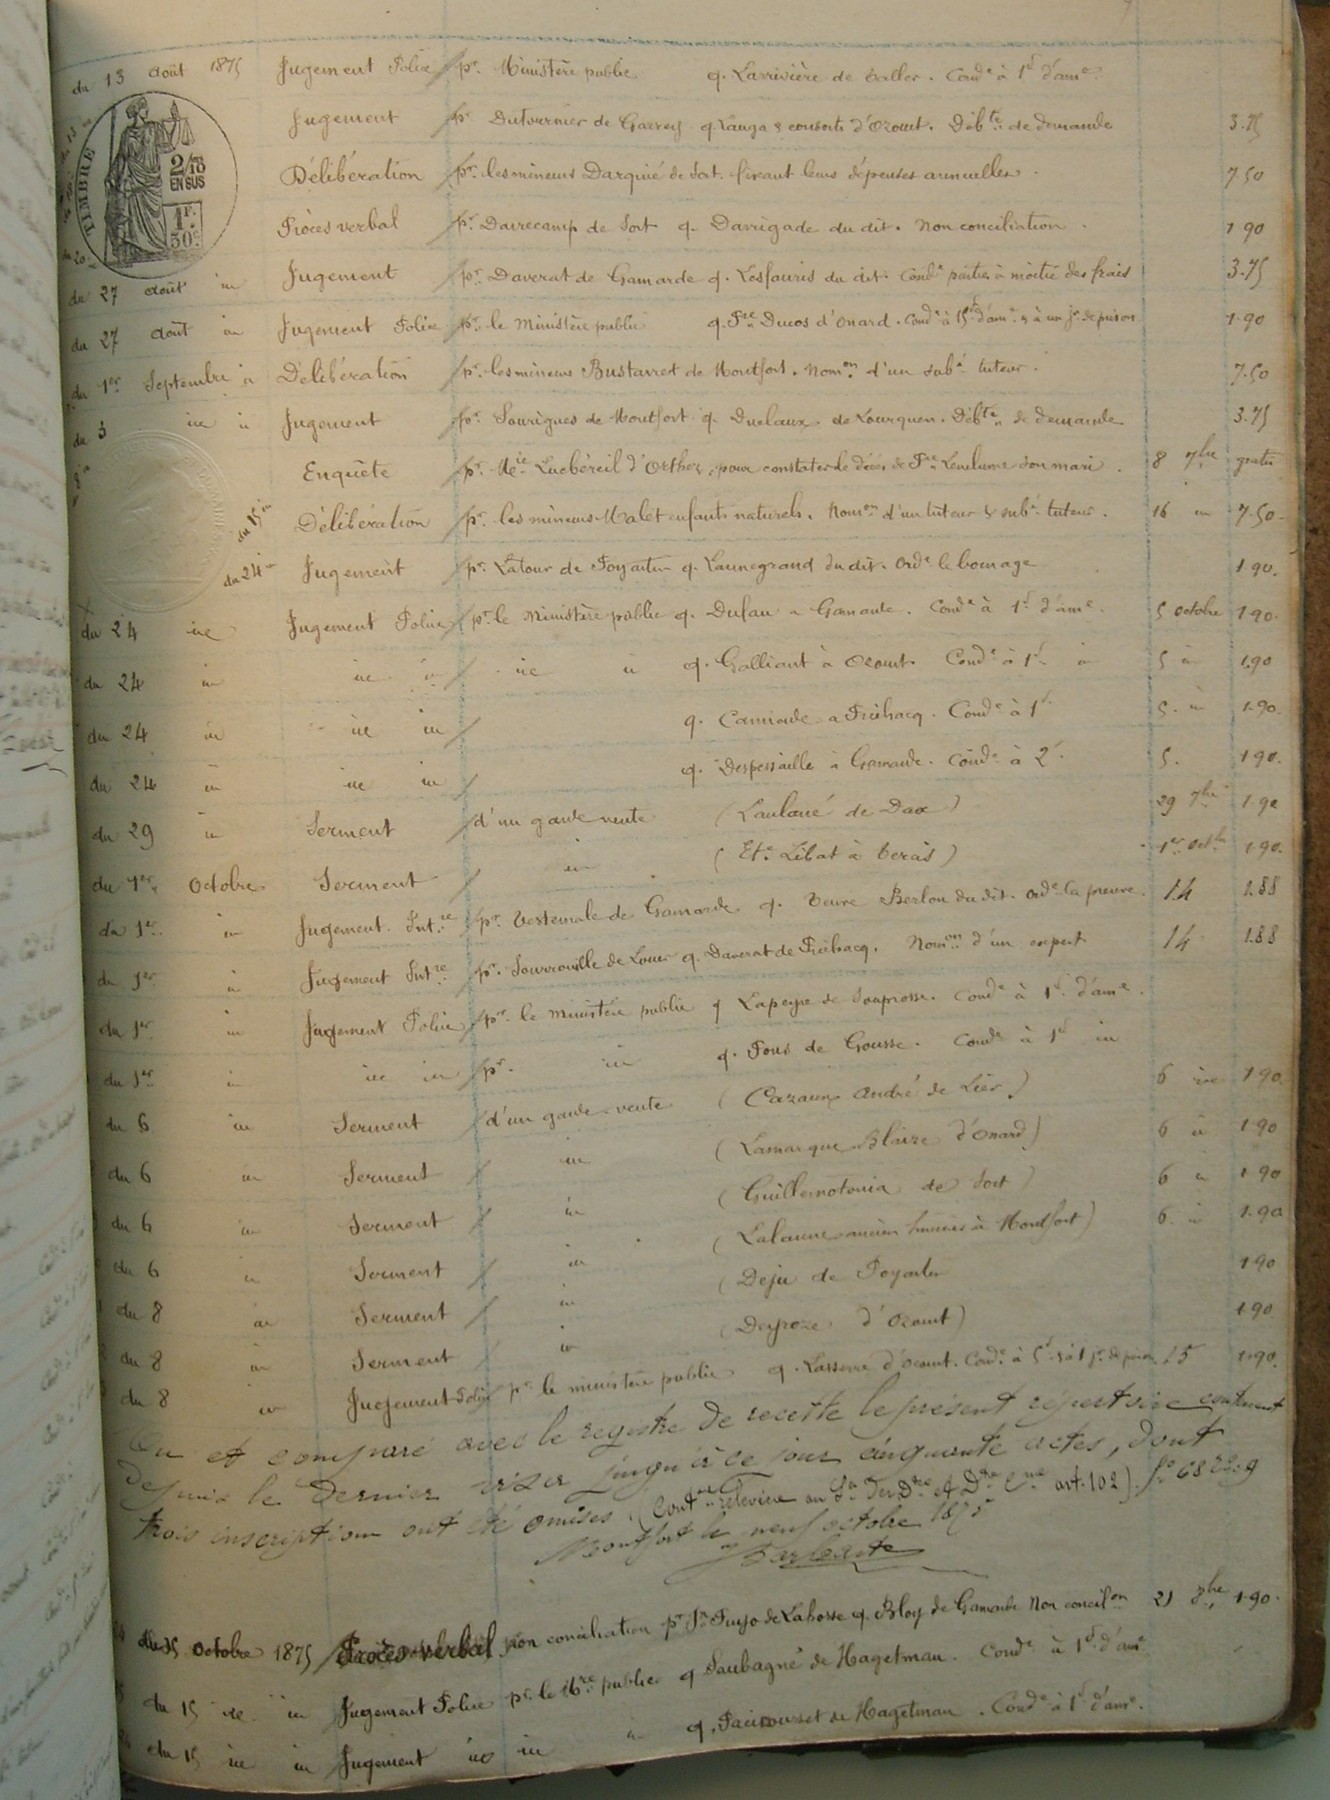 du 13 août 1875 Jugement Police pr. Ministère public q. Larrivière de Condé à 1f d'ame
TIMBRE 2/10 EN SUS 1F. 50c.
Jugement pr Dutournier de Garrey q. Lauga & consorts d'Ozourt. Débte de demande 3.75
Délibération pr. les mineurs Darquié de Sort. fixant leurs dépenses annuelles. 7.50
Procès verbal pr. Dairecamp de Sort q. Darrigade du dit. Non conciliation. 1 90
du 27 août in Jugement pr. Daverat de Gamarde q. Lesfauris du dit. Condé parties à moitié des frais 3.75
du 27 août in Jugement Police pr. le Ministère public q. Fre Ducos d'Onard. Condé à 15f d'ame & à un jr de prison 1.90
du 1er Septembre in Délibération pr. les mineurs Bustarret de Montfort. Nomon d'un subé tuteur. 7.50
du 3 ire in Jugement pr. Sourigues de Montfort q. Duclaux de Lourquen. Débte de demande 3.75
Enquête pr. Mie Lucbéreil d'Orthez, pour constater le décès de Fre son mari. 8 7bre gratis
du 15 in Délibération pr. les mineurs Malet enfants naturels. Nomon d'un tuteur & subé tuteur. 16 in 7.50
du 24 in Jugement pr. Latour de Poyartin q. Launegrand du dit. Orde le bornage 1 90.
du 24 ire Jugement Police pr. le Ministère public q. Dufau a Gamarde. Condé à 1f d'ame. 5 octobre 1 90.
du 24 in ire in ire in q. Galliant à Ozourt. Condé à 1f in 5 in 1.90
du 24 in ire in q. Camiade a Préchacq. Condé à 1f. 5. in 1.90.
du 24 in ire in q. Despessaille à Gamarde. Condé à 2f. 5. 1 90.
du 29 in Serment d'un garde vente (Laulané de Dax) 29 7bre 1.90
du 1er Octobre Serment in (Ete Libat à ) 1er Octbre 1.90.
du 1er in Jugement Intre pr. Vestemale de Gamarde q. Veuve Berlon du dit. orde la preuve. 14 1.88
du 1er in Jugement Intre pr. Sourrouille de Louer q. Daverat de Préchacq. Nomon d'un expert 14 1.88
du 1er in Jugement Police pr. le ministère public q Lapeyre de Souprosse. Condé à 1f d'ame.
du 1er in ire in pr. in q. Pons de Gousse. Condé à 1f in
du 6 in Serment d'un garde-vente (Cazaux André de Lier) 6 ire 1.90
du 6 in Serment in (Lamarque Blaize d'Onard) 6 in 1.90
du 6 in Serment in (Guillemotonia de Sort) 6 in 1 90
du 6 in Serment in (Lalanne ancien huissier à Montfort) 6. in 1.90
du 8 in Serment in (Deju de Poyartin 1 90
du 8 in Serment in (Deyroze d'Ozourt) 1 90
du 8 in Jugement Police pr. le ministère public q. Lasserre d'Ozourt. Condé à 5f & à 1 jr de prison 15 1.90
Vu et comparé avec le registre de recette le présent répertoire contenant
depuis le dernier visa jusqu'à ce jour cinquante actes, dont
trois inscriptions ont été omises. (Conton relevée au art. 102).
Montfort le neuf octobre 1875
du 15 octobre 1875 Procès-verbal non conciliation pr Jn Puyo de Labosse q. Bloy de Gamarde Non concilon 21 8bre 1.90.
du 15 ire in Jugement Police pr. le Mre public q Saubagné de Hagetmau. Condé à 1f d'ame
du 15 ire in Jugement in in q. de Hagetmau. Condé à 1f d'ame.